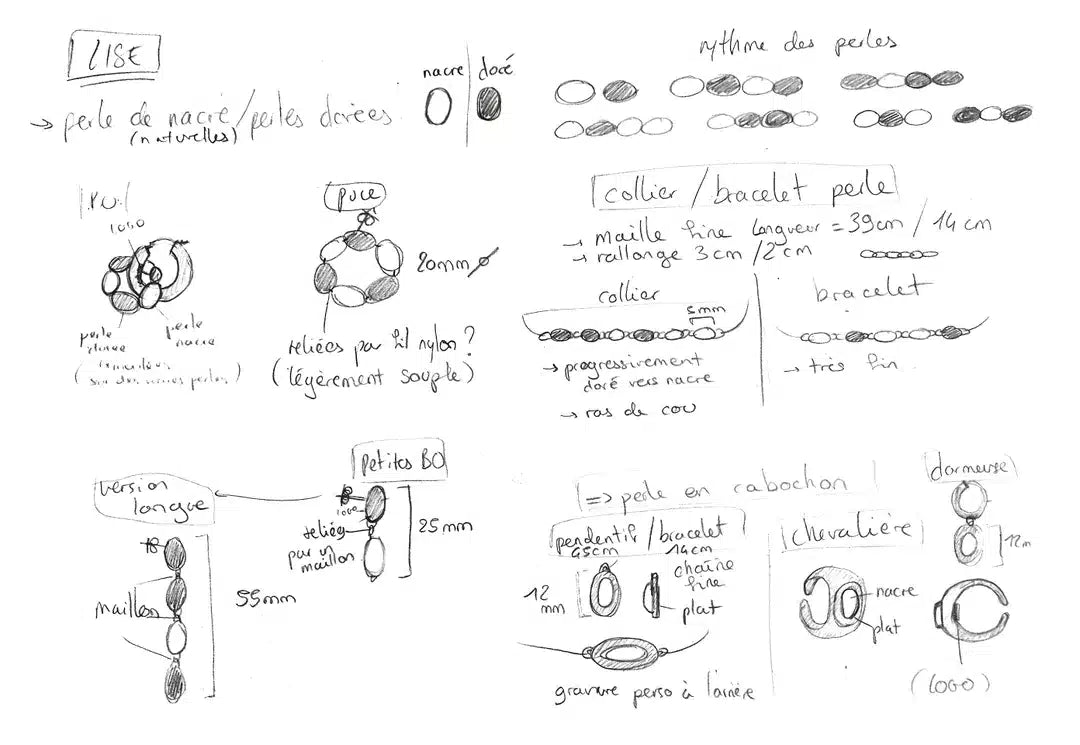 LISE
nacre
doré
→ perle de nacre/perles dorées
(naturelles)
rythme des perles
LOGO
perle
dorée
perle
nacre
puce
20mm
reliées par fil nylon ?
(légèrement souple)
collier / bracelet perle
→ maille fine longueur = 39cm / 14 cm
→ rallonge 3cm / 2cm
collier
5mm
→ progressivement
doré vers nacre
→ ras de cou
bracelet
→ très fin
version
longue
maillon
55mm
petites BO
LOGO
reliées
par un
maillon
25mm
=> perle en cabochon
pendentif / bracelet
45cm
14cm
chaîne
fine
12
mm
plat
gravure perso à l'arrière
chevalière
nacre
plat
dormeuse
12m
(LOGO)